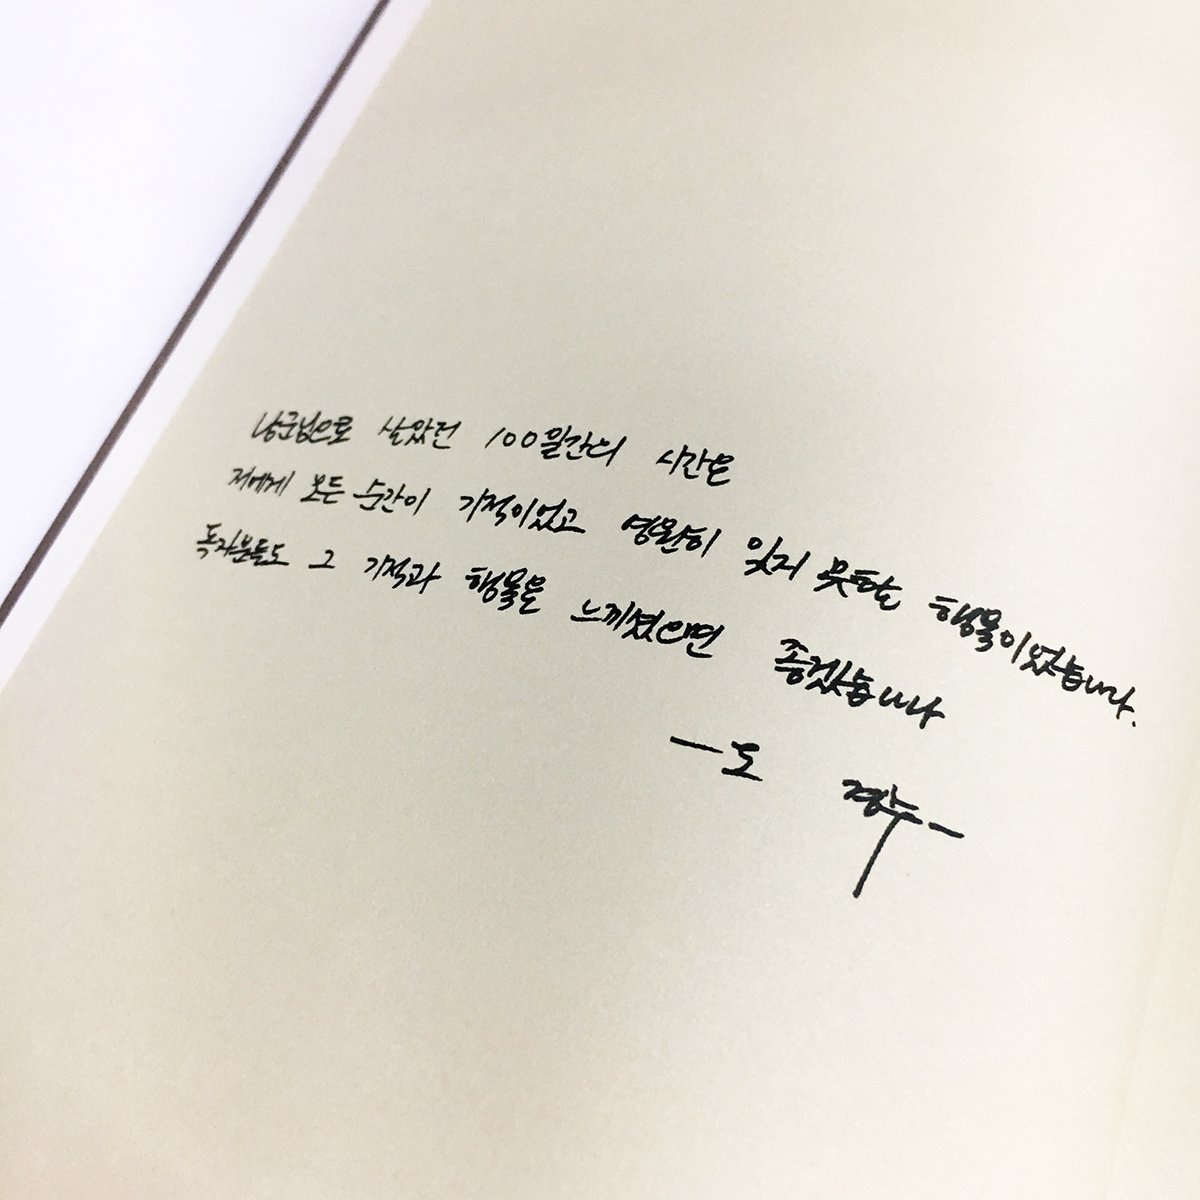 낭군님으로 살았던 100일간의 시간은
저에게 모든 순간이 기적이었고 영원히 잊지 못할 행복이었습니다.
독자분들도 그 기적과 행복을 느끼셨으면 좋겠습니다
-도 경수-